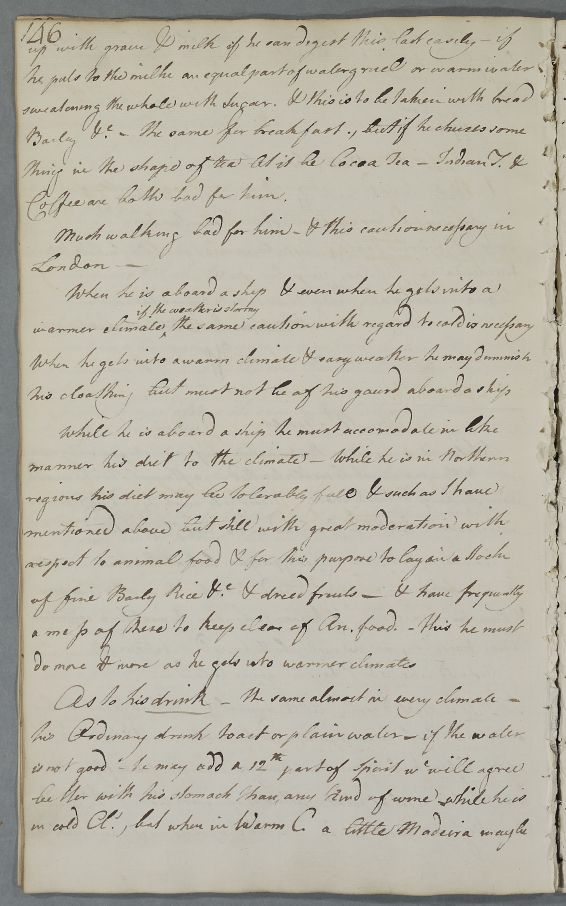 146
up with grave & milk if he can digest this last easily – if
he puts to the milk an equal part of watergruel or warm water
sweatening the whole with sugar. & this is to be taken with bread
Barly &c – The same for breakfast., but if he chuses some
thing in the shape of tea let it be Cocoa Tea – Indian T. &
Coffee are both bad for him.
Much walking bad for him – & this caution necessary in
London —
When he is aboard a ship & even when he gets into a
if the weather is stormy
warmer climate, the same caution with regard to cold is necessary
When he gets into a warm climate & easy weather he may diminish
his cloathing but must not be of his gaurd aboard a ship
While he is aboard a ship he must accomodate in like
manner his diet to the climate – While he is in Northern
regions his diet may be tolerably full & such as I have
mentioned above but still with great moderation with
respect to animal food & for this purpose to lay in a stock
of fine Barly Rice &c & dreed fruits – & have frequently
a mess of these to keep clear of An. food. – This he must
do more & more as he gets into warmer climates
As to his drink – the same almost in every climate –
his Ordinary drink toast or plain water – if the water
is not good – he may add a 12th part of spirit wc will agree
better with his stomach than any kind of wine while he is
in cold Cl., but when in Warm C. a little Madeira may be